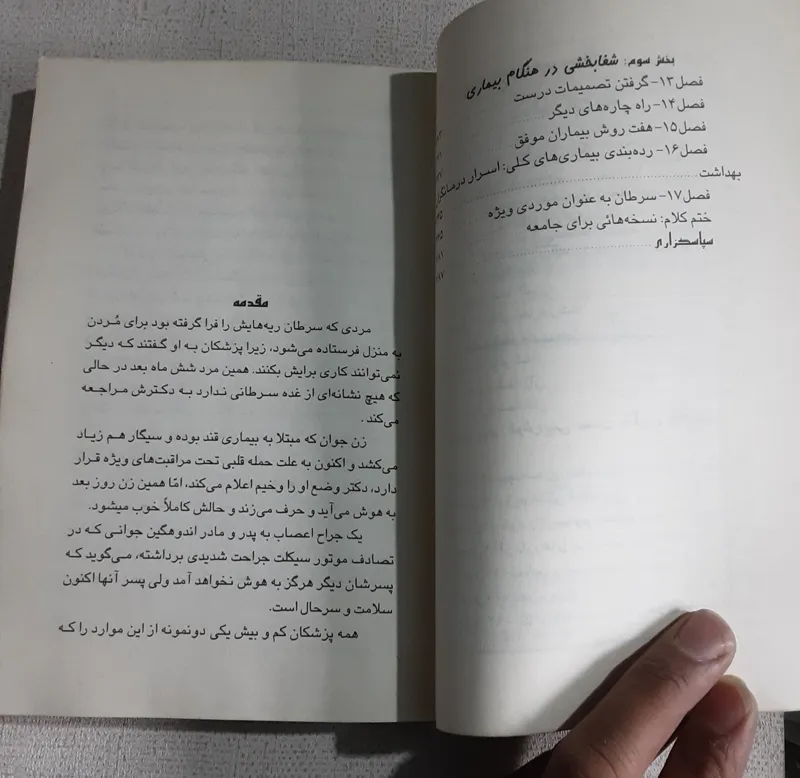 بخش سوم: شفابخشی در هنگام بیماری
فصل۱۳- گرفتن تصمیمات درست
فصل۱۴- راه چاره‌های دیگر
فصل۱۵- هفت روش بیماران موفق
فصل۱۶- رده‌بندی بیماری‌های کلی: اسرار
بهداشت
فصل۱۷- سرطان به عنوان موردی ویژه
ختم کلام: نسخه‌هائی برای جامعه
سپاسگزاری
مقدمه
مردی که سرطان ریه‌هایش را فرا گرفته بود برای مُردن
به منزل فرستاده می‌شود، زیرا پزشکان به او گفتند که دیگر
نمی‌توانند کاری برایش بکنند. همین مرد شش ماه بعد در حالی
که هیچ نشانه‌ای از غده سرطانی ندارد به دکترش مراجعه
می‌کند.
زن جوان که مبتلا به بیماری قند بوده و سیگار هم زیاد
می‌کشد و اکنون به علت حمله قلبی تحت مراقبت‌های ویژه قرار
دارد، دکتر وضع او را وخیم اعلام می‌کند، امّا همین زن روز بعد
به هوش می‌آید و حرف می‌زند و حالش کاملاً خوب میشود.
یک جراح اعصاب به پدر و مادر اندوهگین جوانی که در
تصادف موتور سیکلت جراحت شدیدی برداشته، می‌گوید که
پسرشان دیگر هرگز به هوش نخواهد آمد ولی پسر آنها اکنون
سلامت و سرحال است.
همه پزشکان کم و بیش یکی دونمونه از این موارد را که